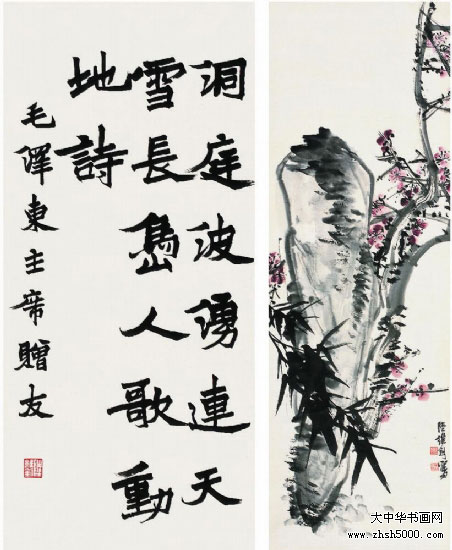 洞庭波湧連天
雪長島人歌動
地詩
毛澤東主席贈友
陸維釗
大中华书画网
www.zhsh5000.com